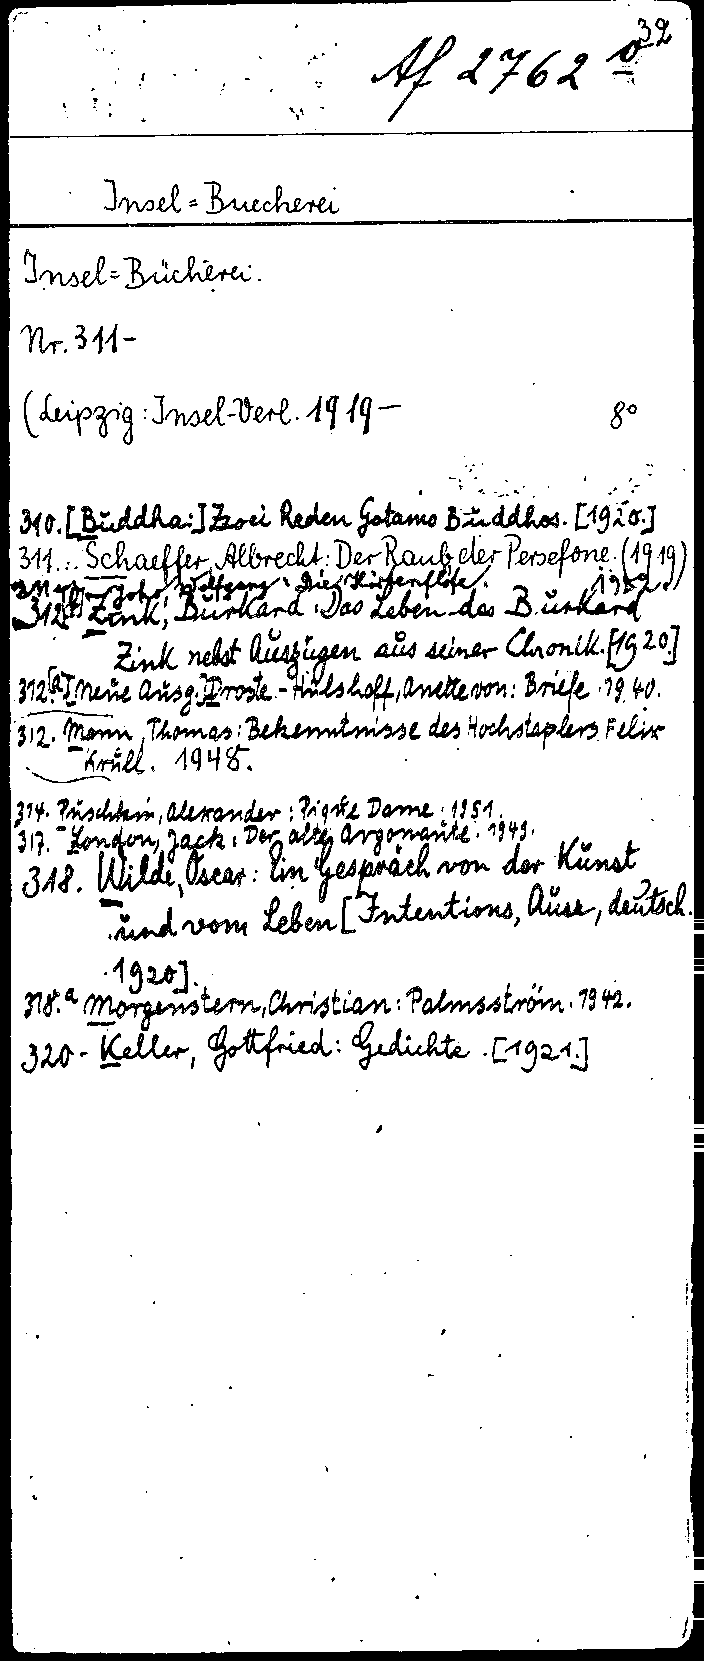 Af 2762 o 32
Insel=Buecherei
Insel=Bücherei.
Nr. 311-
(Leipzig: Insel-Verl. 1919- 8°
310. [Buddha:] Zwei Reden Gotamo Buddhos. [1920.]
311... Schaeffer, Albrecht: Der Raub der Persefone. (1919)
Wolfgang: Die Hirtenflöte. 1952.
312. Zink, Burkard: Das Leben des Burkard
Zink nebst Auszügen aus seiner Chronik. [1920]
312 [a] [Neue Ausg.] Droste-Hülshoff, Anette von: Briefe. 1940.
312. Mann, Thomas: Bekenntnisse des Hochstaplers Felix
Krull. 1948.
314. Puschkin, Alexander: Pique Dame. 1951.
317. London, Jack: Der alte Argonaute. 1949.
318. Wilde, Oscar: Ein Gespräch von der Kunst
und vom Leben [Intentions, Ausz., deutsch.
1920].
318.a Morgenstern, Christian: Palmsström. 1942.
320- Keller, Gottfried: Gedichte. [1921.]